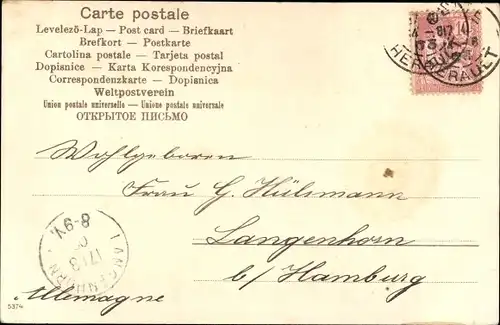 Carte postale
Levelező-Lap — Post card — Briefkaart
Brefkort — Postkarte
Cartolina postale — Tarjeta postal
Dopisnice — Karta Korespondencyjna
Correspondenzkarte — Dopisnica
Weltpostverein
Union postale universelle — Unione postale universale
ОТКРЫТОЕ ПИСЬМО
HERAULT
10
Wohlgeboren
Frau G. Hülsmann
Langenhorn
b/Hamburg
Allemagne
LANGENHORN
17/3
8-9V.
5374